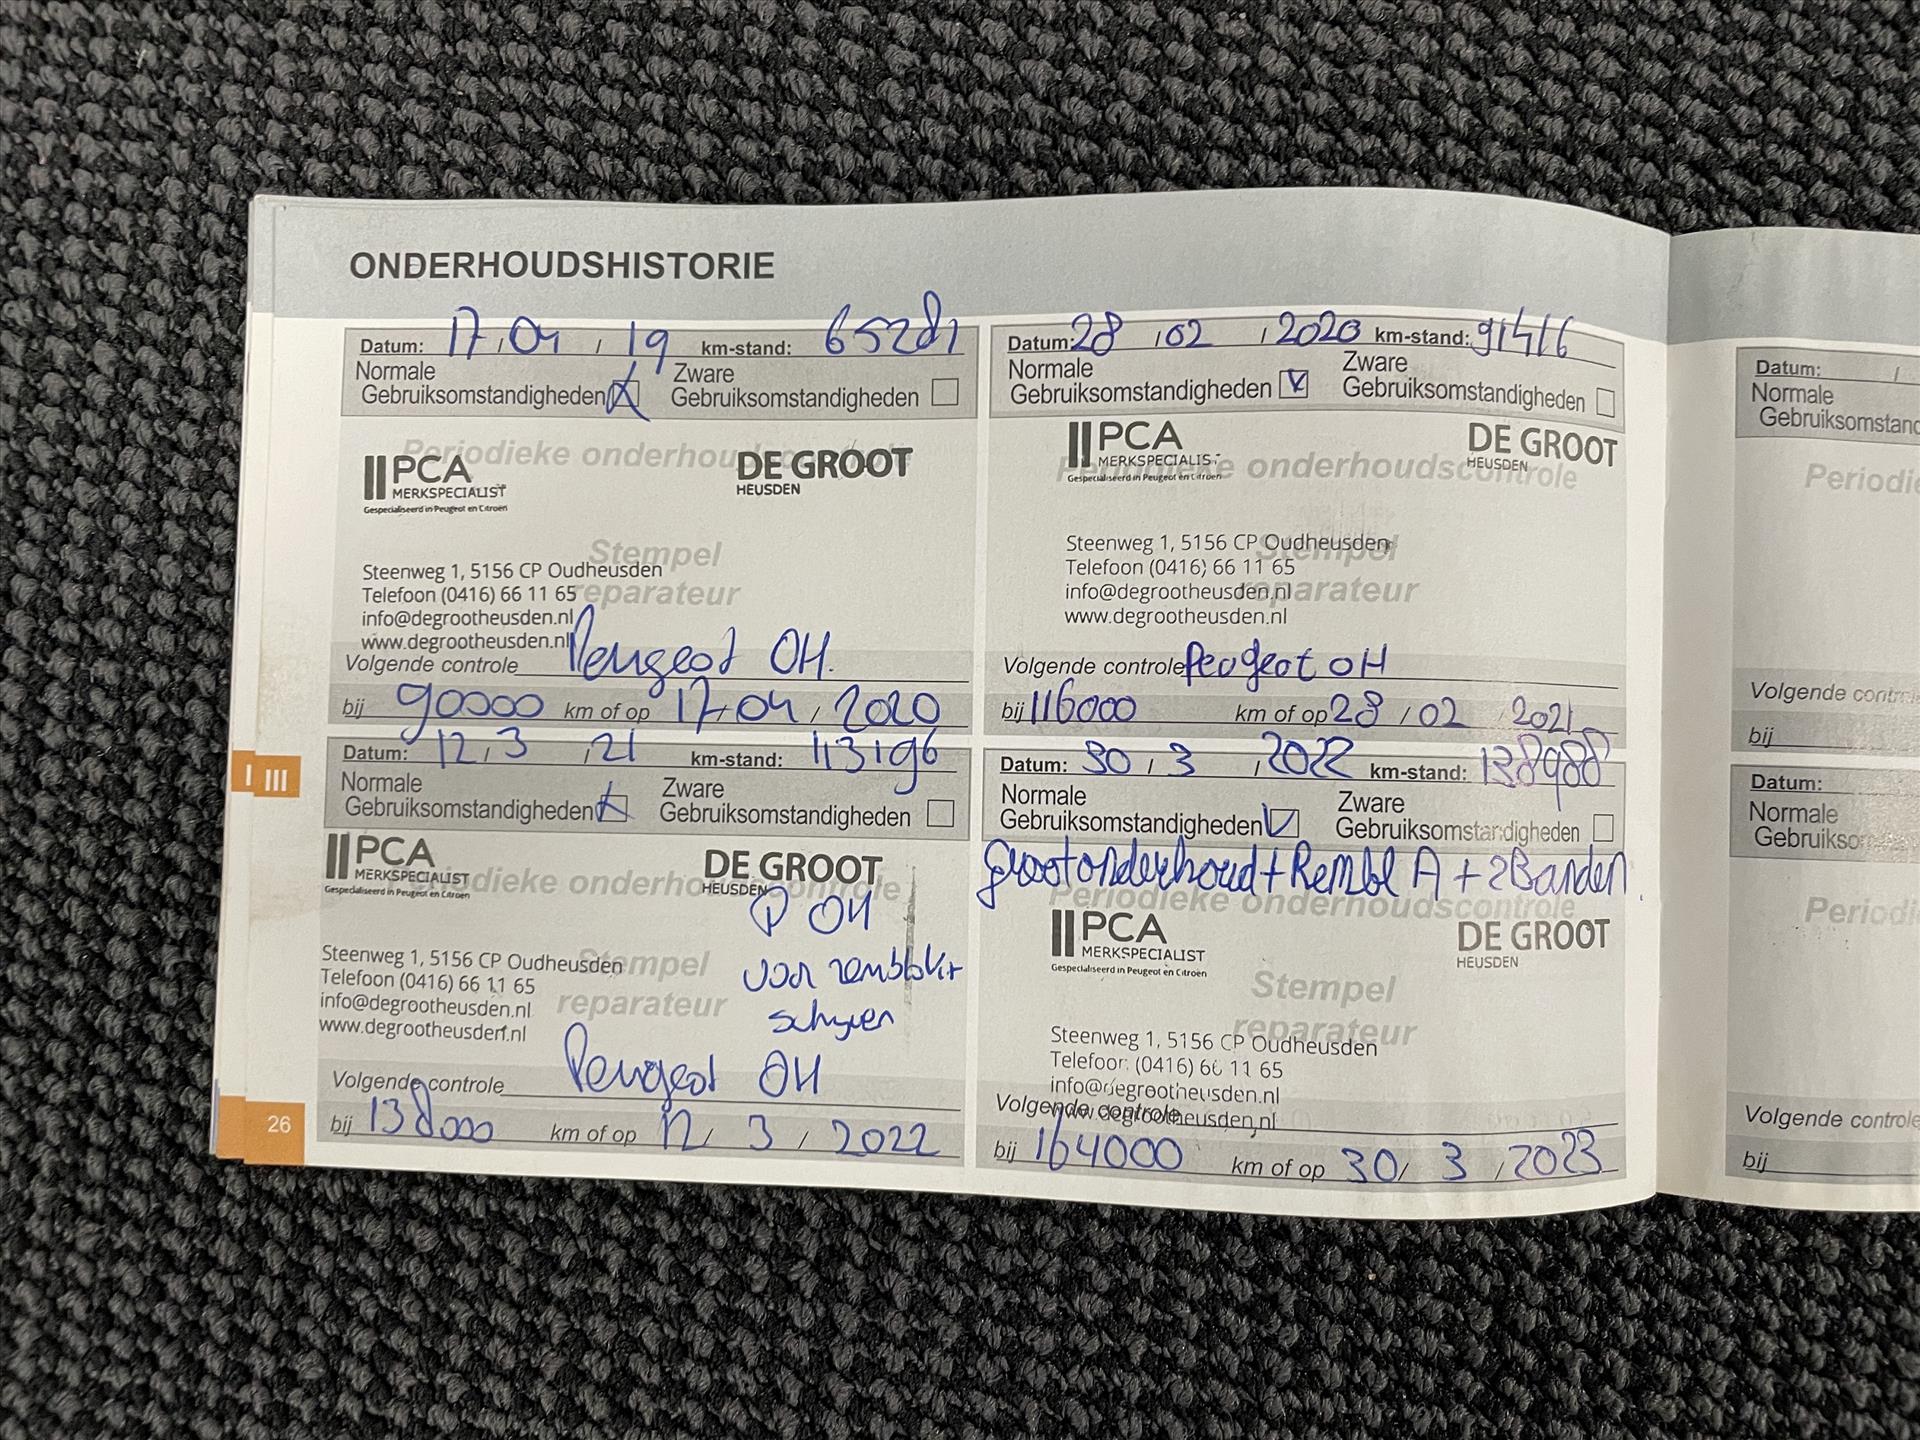 ONDERHOUDSHISTORIE
Datum: 17/04/19 km-stand: 65281
Normale Zware
Gebruiksomstandigheden Gebruiksomstandigheden
Periodieke onderhoudscontrole
PCA DE GROOT
MERKSPECIALIST HEUSDEN
Gespecialiseerd in Peugeot en Citroën
Stempel
Steenweg 1, 5156 CP Oudheusden
Telefoon (0416) 66 11 65
reparateur
info@degrootheusden.nl
www.degrootheusden.nl
Volgende controle Peugeot OH.
bij 90000 km of op 17/04/2020
Datum: 28/02/2020 km-stand: 91416
Normale Zware
Gebruiksomstandigheden Gebruiksomstandigheden
PCA DE GROOT
MERKSPECIALIST HEUSDEN
Periodieke onderhoudscontrole
Gespecialiseerd in Peugeot en Citroën
Steenweg 1, 5156 CP Oudheusden
Stempel
Telefoon (0416) 66 11 65
info@degrootheusden.nl
reparateur
www.degrootheusden.nl
Volgende controle Peugeot OH
bij 116000 km of op 28/02/2021
Datum: 12/3/21 km-stand: 113196
Normale Zware
Gebruiksomstandigheden Gebruiksomstandigheden
PCA DE GROOT
MERKSPECIALIST HEUSDEN
Periodieke onderhoudscontrole
Gespecialiseerd in Peugeot en Citroën
P OH
Steenweg 1, 5156 CP Oudheusden
Stempel
voor remblokken
Telefoon (0416) 66 11 65
info@degrootheusden.nl
reparateur
schijven
www.degrootheusden.nl
Volgende controle Peugeot OH
bij 138000 km of op 12/3/2022
Datum: 30/3/2022 km-stand: 138988
Normale Zware
Gebruiksomstandigheden Gebruiksomstandigheden
grootonderhoud + Rembl A + 2 Banden.
Periodieke onderhoudscontrole
PCA DE GROOT
MERKSPECIALIST HEUSDEN
Gespecialiseerd in Peugeot en Citroën
Stempel
reparateur
Steenweg 1, 5156 CP Oudheusden
Telefoon (0416) 66 11 65
info@degrootheusden.nl
Volgende controle
www.degrootheusden.nl
bij 164000 km of op 30/3/2023
I III
26
Datum: /
Normale
Gebruiksomstan
Periodie
Volgende contr
bij
Datum:
Normale
Gebruikso
Periodi
Volgende controle
bij